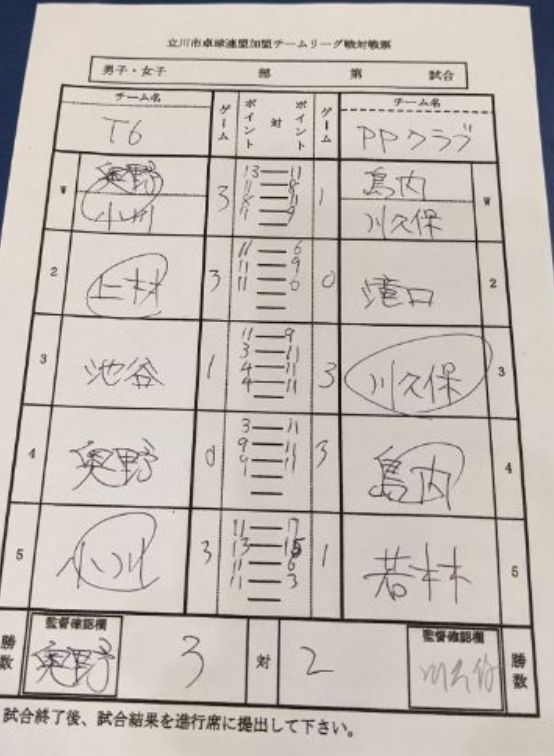 立川市卓球連盟加盟チームリーグ戦対戦票
男子・女子 部 第 試合
チーム名 ゲーム ポイント 対 ポイント ゲーム チーム名
T6 PPクラブ
W 奥野 小川 3 1 島内 川久保 W
13 — 11
11 — 8
8 — 11
11 — 9
2 上村 3 0 滝口 2
11 — 6
11 — 9
11 — 6
3 池谷 1 3 川久保 3
11 — 9
3 — 11
4 — 11
4 — 11
4 奥野 0 3 島内 4
3 — 11
9 — 11
9 — 11
5 小川 3 1 若林 5
11 — 7
13 — 15
11 — 6
11 — 3
勝数 監督確認欄 奥野 3 対 2 監督確認欄 勝数
試合終了後、試合結果を進行席に提出して下さい。